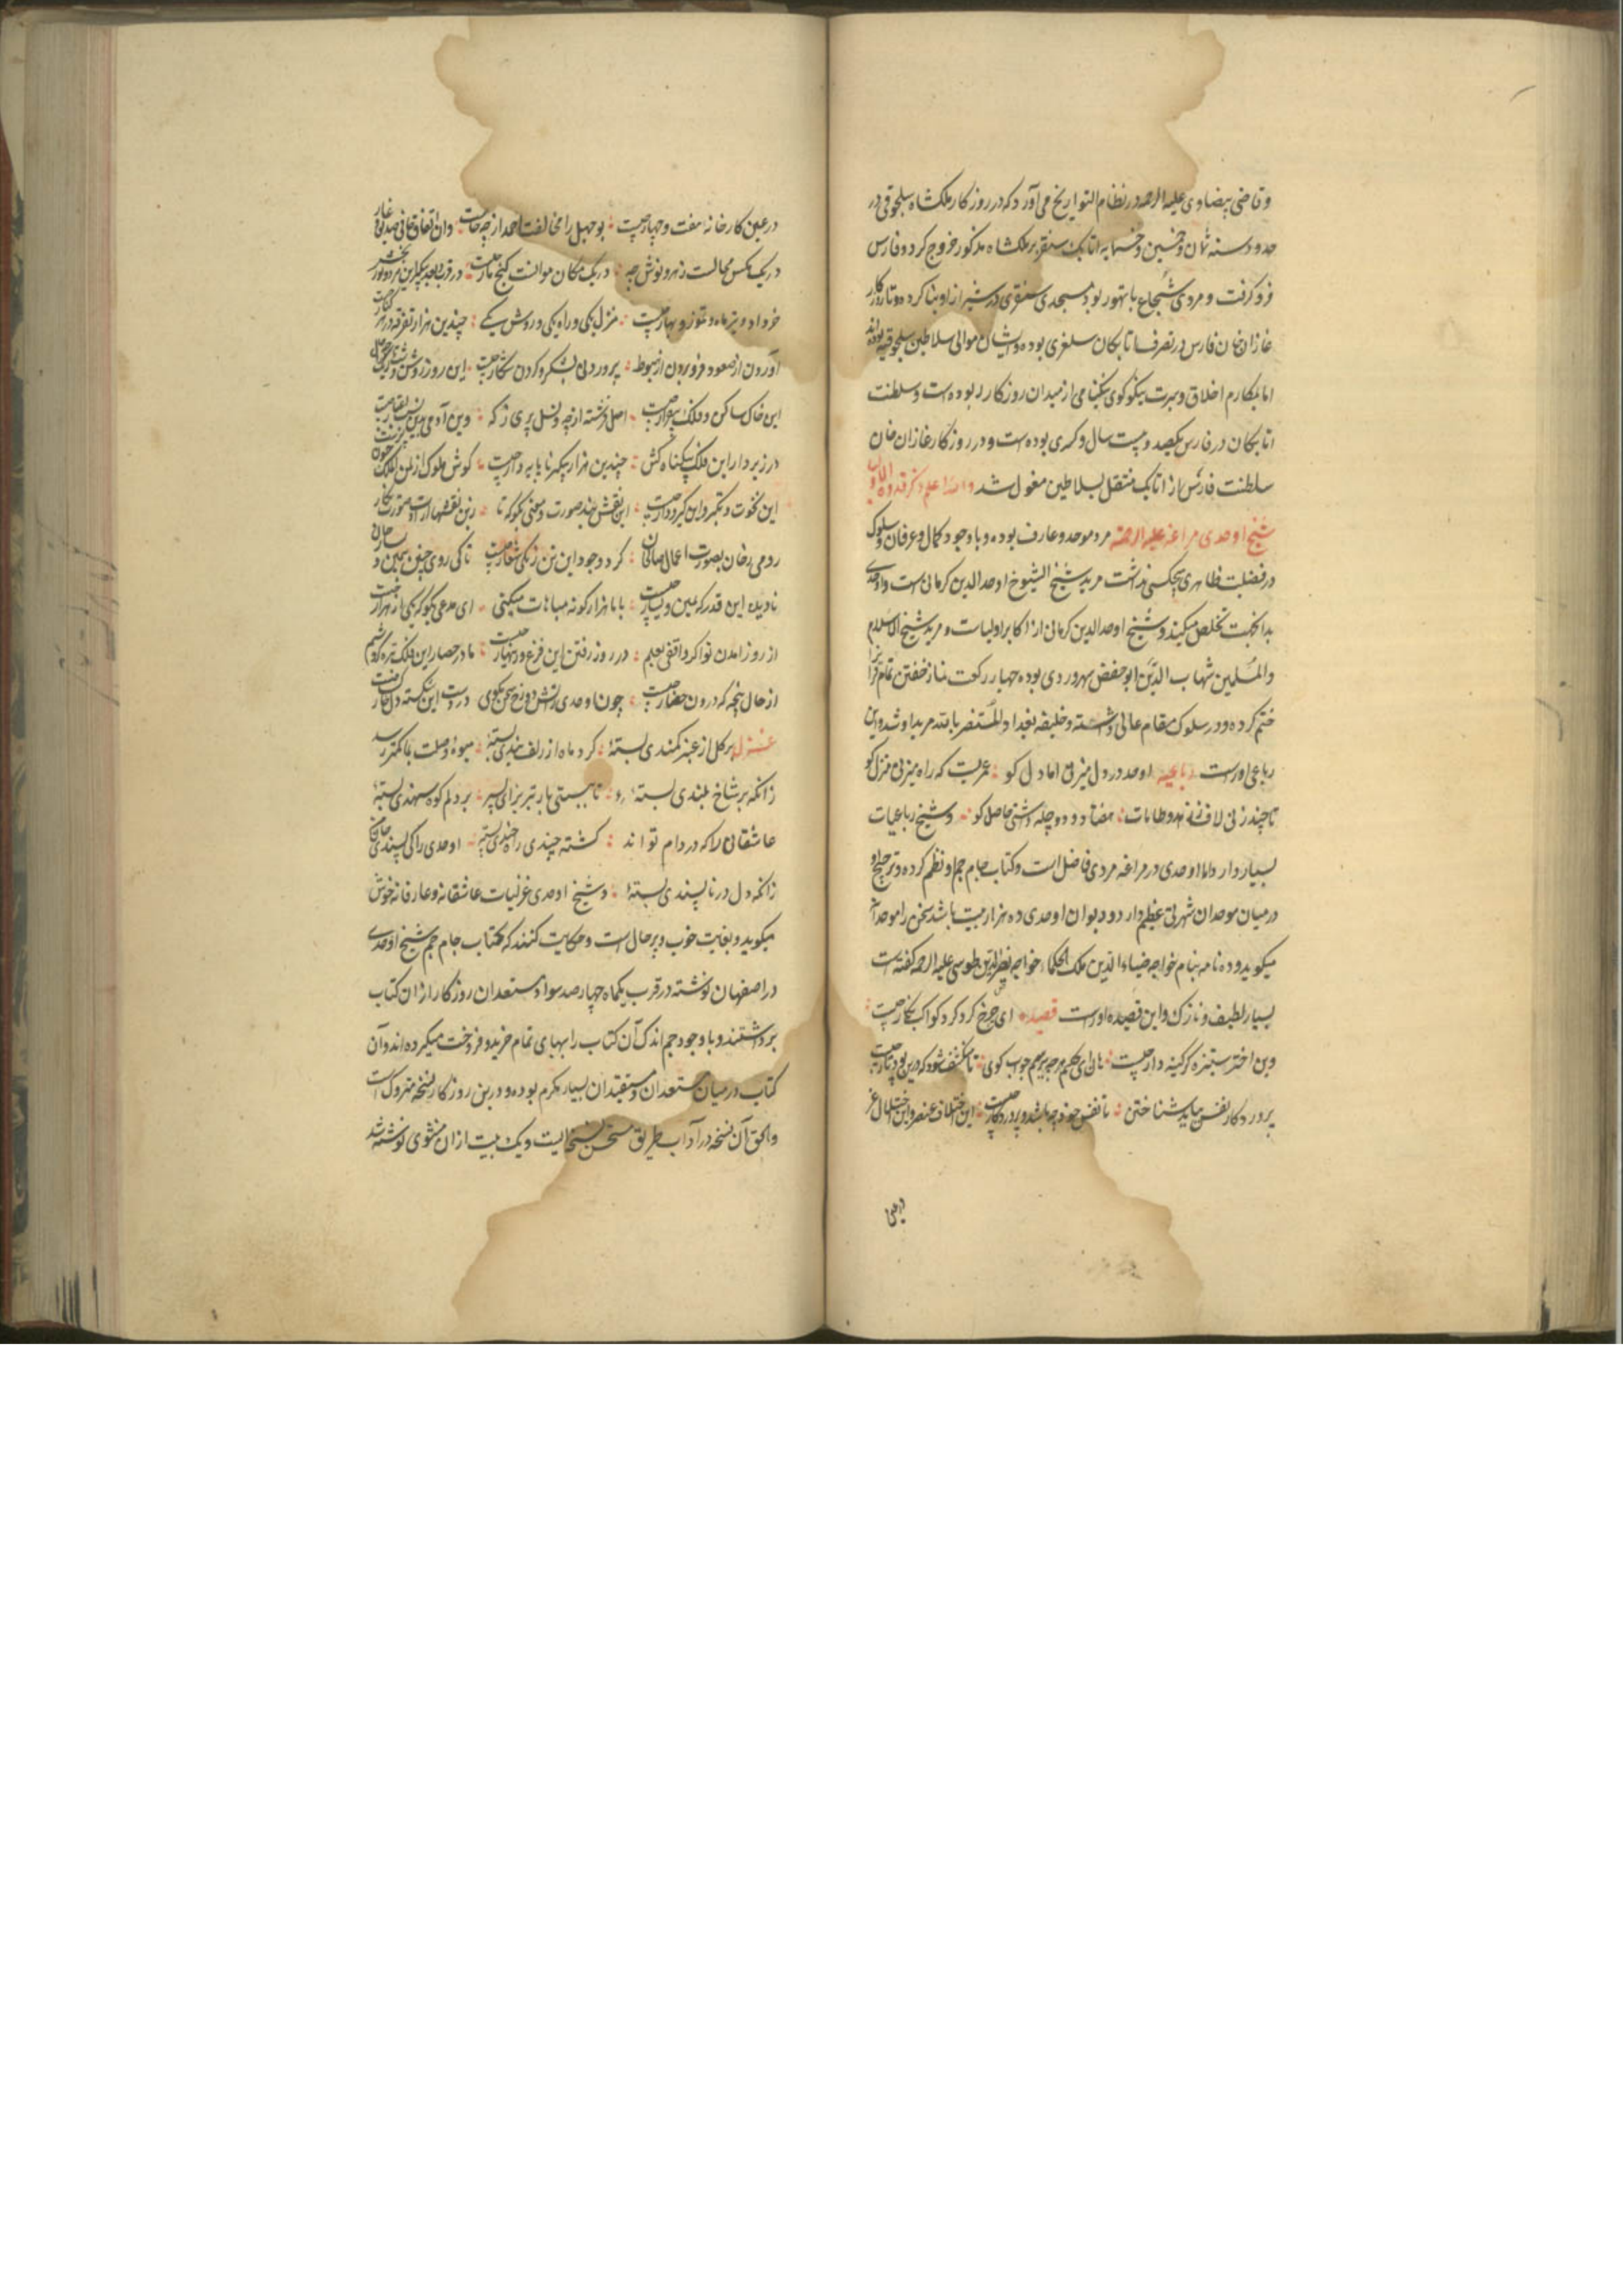 و قاضی بیضاوی علیه الرحمه در نظام التواریخ می‌آورد که در روزگار ملکشاه سلجوقی در
حدود سنه ثمان و خمسین و خمسمایه اتابک سنقر بر ملکشاه مذکور خروج کرد و فارس
فرو گرفت و مردی شجاع با تهور بود مسجدی سنقری در شیراز او بنا کرده و تا روزگار
غازان خان فارس در تصرف اتابکان سلغری بوده و ایشان موالی سلاطین سلجوقیه بوده‌اند
اما بمکارم اخلاق و سیرت نیکو کوی نیکنامی از میدان روزکار ربوده‌ست و سلطنت
اتابکان در فارس یکصد و بیست سال و کسری بوده‌ست و در روزکار غازان خان
سلطنت فارس از اتابک منتقل بسلاطین مغول شد والله اعلم ذکر قدوة
شیخ اوحدی مراغه علیه الرحمه مرد موحد و عارف بوده و با وجود کمال و عرفان و سلوک
در فضیلت ظاهری هیچ کمی نداشت مرید شیخ الشیوخ اوحد الدین کرمانی است و اوحدی
بدانجهت تخلص میکند و شیخ اوحد الدین کرمانی از اکابر اولیاست و مرید شیخ الاسلام
والمسلمین شهاب الدین ابو حفص سهروردی بوده چهار رکعت نماز خفتن تمام قرآنرا
ختم کرده و در سلوک مقام عالی داشته و خلیفه بغداد المستنصر بالله مرید او شد و این
رباعی اوراست رباعیه اوحد در دل میزنی اما دل کو عمریست که راه میزنی منزل کو
تا چند زنی لاف ز زهد و طامات هفتاد و دو چله داشتی حاصل کو و شیخ رباعیات
بسیار دارد اما اوحدی در مراغه مردی فاضل است و کتاب جام جم او نظم کرده و ترجیح او
در میان موحدان شهرتی عظیم دارد و دیوان اوحدی ده هزار بیت باشد سخن را موحدانه
میکوید و ده نامه بنام خواجه ضیاء الدین ملک الحکماء خواجه نصیر الدین طوسی علیه الرحمه کفته است
بسیار لطیف و نازک و این قصیده اوراست قصیده ای چرخ کرد کرد کواکب نکار چیست
وین اختر ستیزه کر کینه دار چیست هان ای حکیم هرچه بپرسم جواب کوی تا منکشف شود که درین پود و تار چیست
پروردکار نفس بباید شناختن تا نفس خود چه باشد و پروردکار چیست این اختلاف عنصر و این اختلال عز
در عین
در عین کارخانه هفت و چهار چیست بوجهل را مخالفت احمد از چه خاست وان اتفاق ثانی صدیق و غار
در یک مکس مجالست زهر و نوش چه در یک مکان موانست کنج و مار چیست در قرب و بعد یکدیگر این
خرداد و تیر ماه و تموز و بهار چیست منزل یکی و راه یکی و روش یکی چندین هزار تفرقه در هر کنار چیست
آوردن از صعود و فرو بردن از هبوط پروردن بشکر و کردن شکار چیست این روز روشن و
این خاک ساکن و فلک بیقرار چیست اصل فرشته از چه و نسل پری ز که وین آدمی بدین
در زیر دار این فلک بیکناه کش چندین هزار پیکر ناپایدار چیست کوش ملوک از لمن الملک چون
این نخوت و تکبر و این کیر و دار چیست این نقش چند صورت و معنی بکو که تا زین نقشها ارادت صورت نکار
رومی رخان بصورت اعمال صالحان کرد وجود این تن زنکی شعار چیست تا کی روی چنین بیمین و
نادیده این قدر که یمین و یسار چیست با ما هزار کونه مباهات میکنی ای مدعی بکو که یکی از هزار چیست
از روز آمدن تو اکر واقفی بعلم در روز رفتن این فزع و زینهار چیست ما در حصار این فلک تیز کردشیم
از حال پنجه که درون حصار چیست چون اوحدی ز آتش دوزخ سخن مکوی در دست این شکسته دل خاکسار
غزل بر کل از عنبر کمندی بستهٔ کرد ماه از زلف بندی بستهٔ میوهٔ وصلت بما کمتر رسد
زانکه بر شاخ بلندی بستهٔ تا ببستی بار تبریز ای پسر بر دلم کوه سهندی بستهٔ
عاشقان را که در دام تو اند کشته چندی را و چندی بستهٔ اوحدی را کی پسندی
زانکه دل در ناپسندی بستهٔ و شیخ اوحدی غزلیات عاشقانه و عارفانه خوش
میکوید و بغایت خوب و پر حال است و حکایت کنند که کتاب جام جم شیخ اوحدی
در اصفهان نوشته در قرب یکماه چهارصد سواد مستعدان روزکار از ان کتاب
برداشتند و با وجود حجم اندک آن کتاب را ببهای تمام خرید و فروخت میکرده‌اند و آن
کتاب در میان مستعدان و معتقدان بسیار مکرم بوده و درین روزکار نسخه متروک است
والحق آن نسخه در آداب طریق مستحسن نسخه‌ایست و یک بیت از ان مثنوی نوشته شد